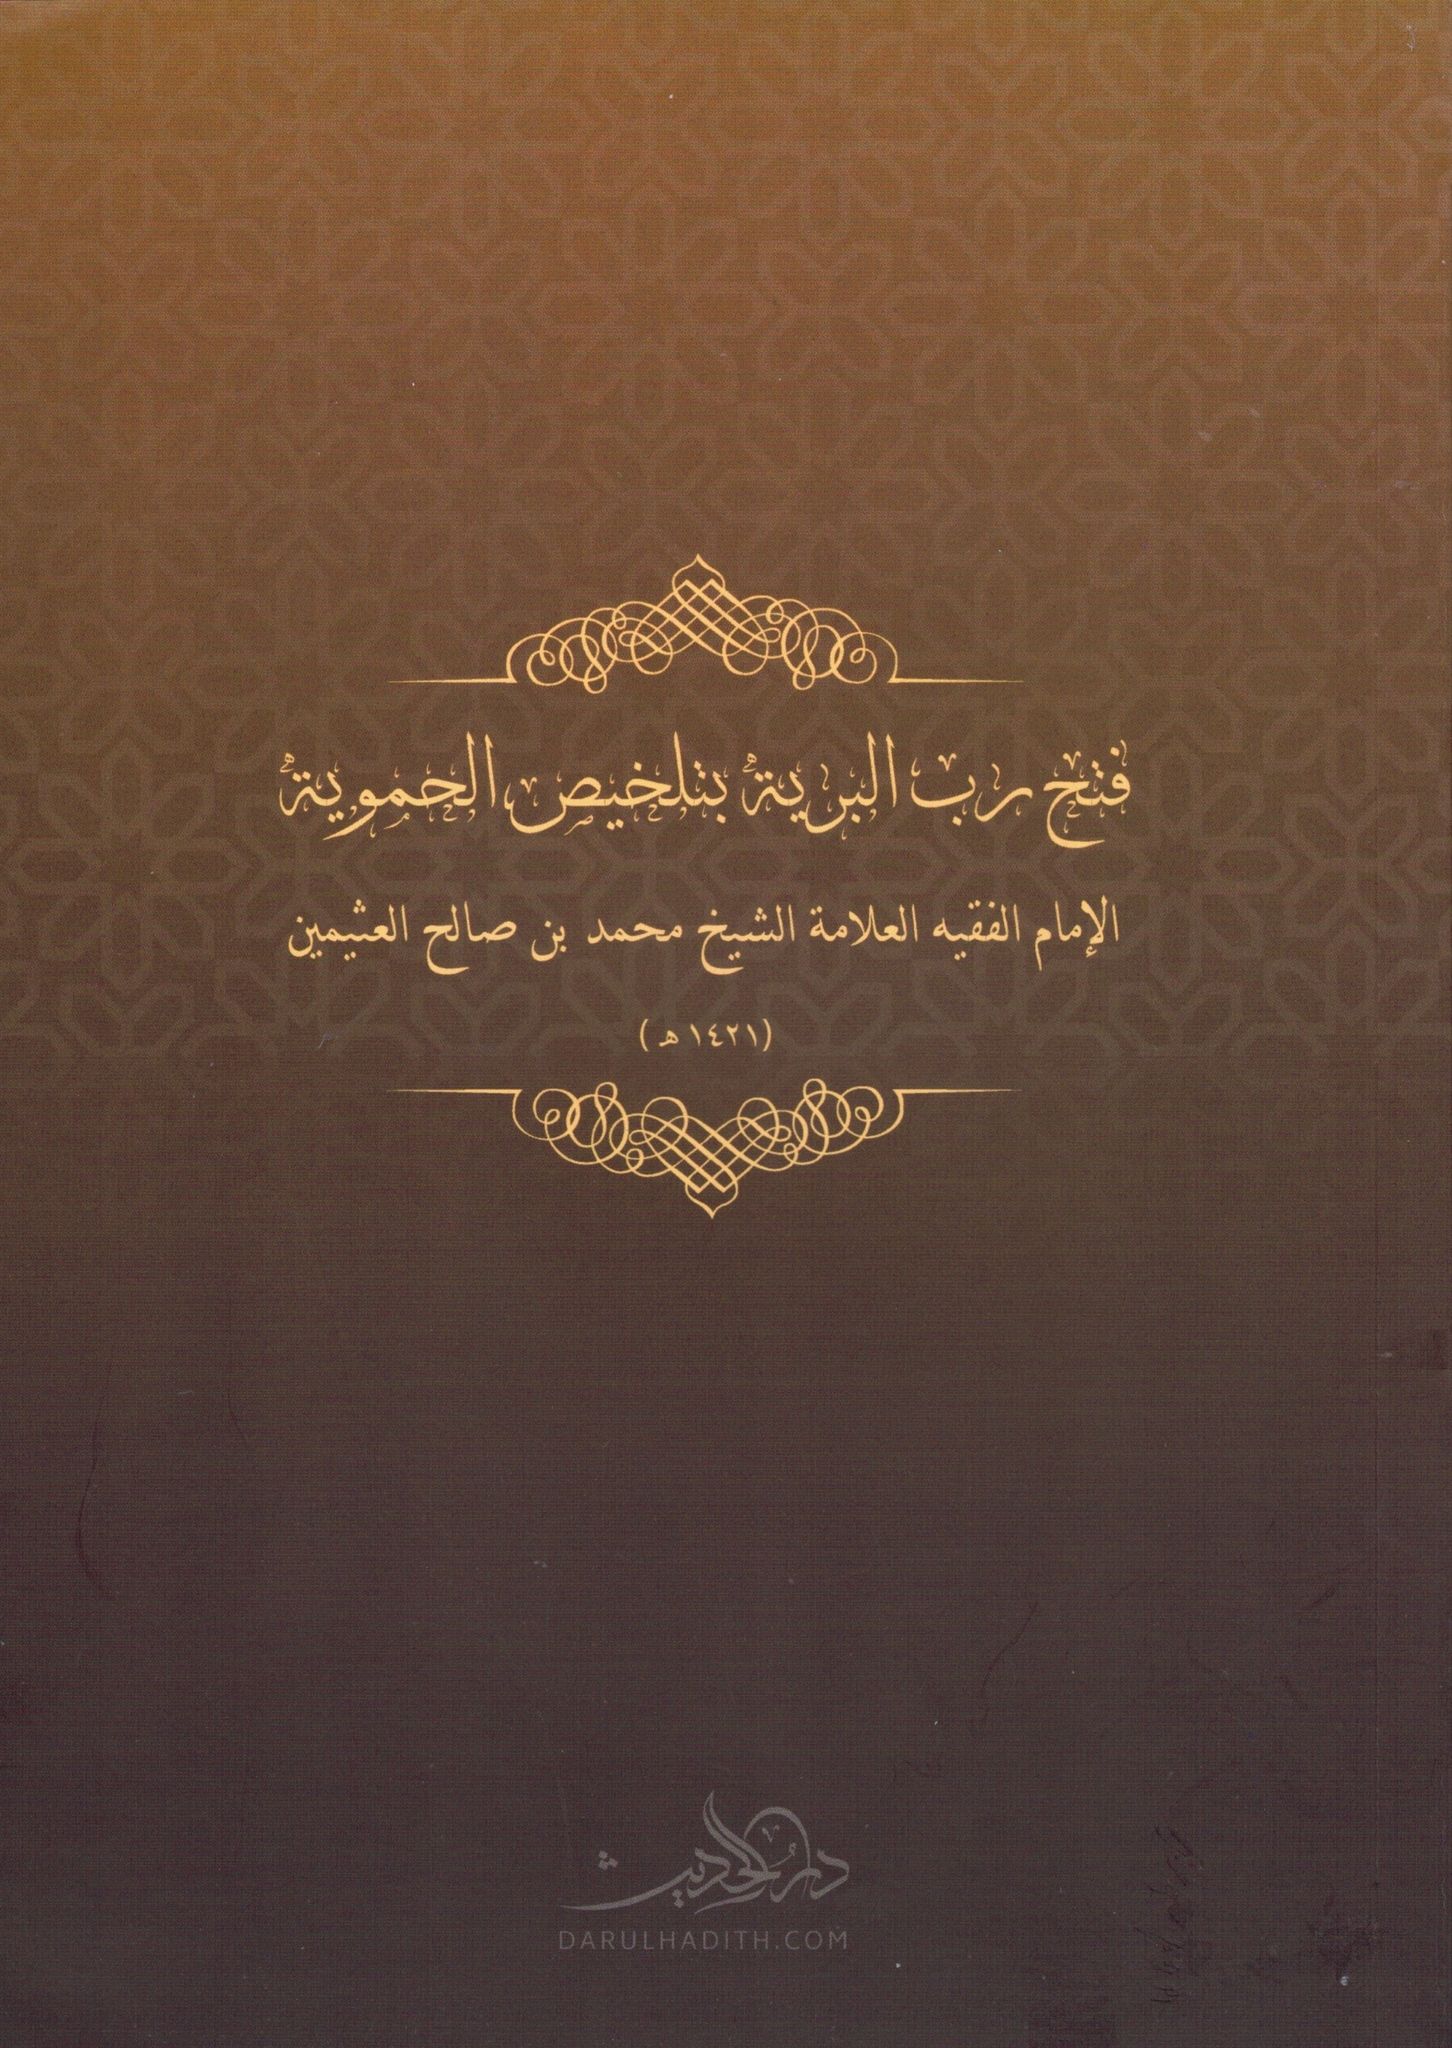 فتح رب البرية بتلخيص الحموية
الإمام الفقيه العلامة الشيخ محمد بن صالح العثيمين
(١٤٢١ هـ)
دار الحديث
DARULHADITH.COM